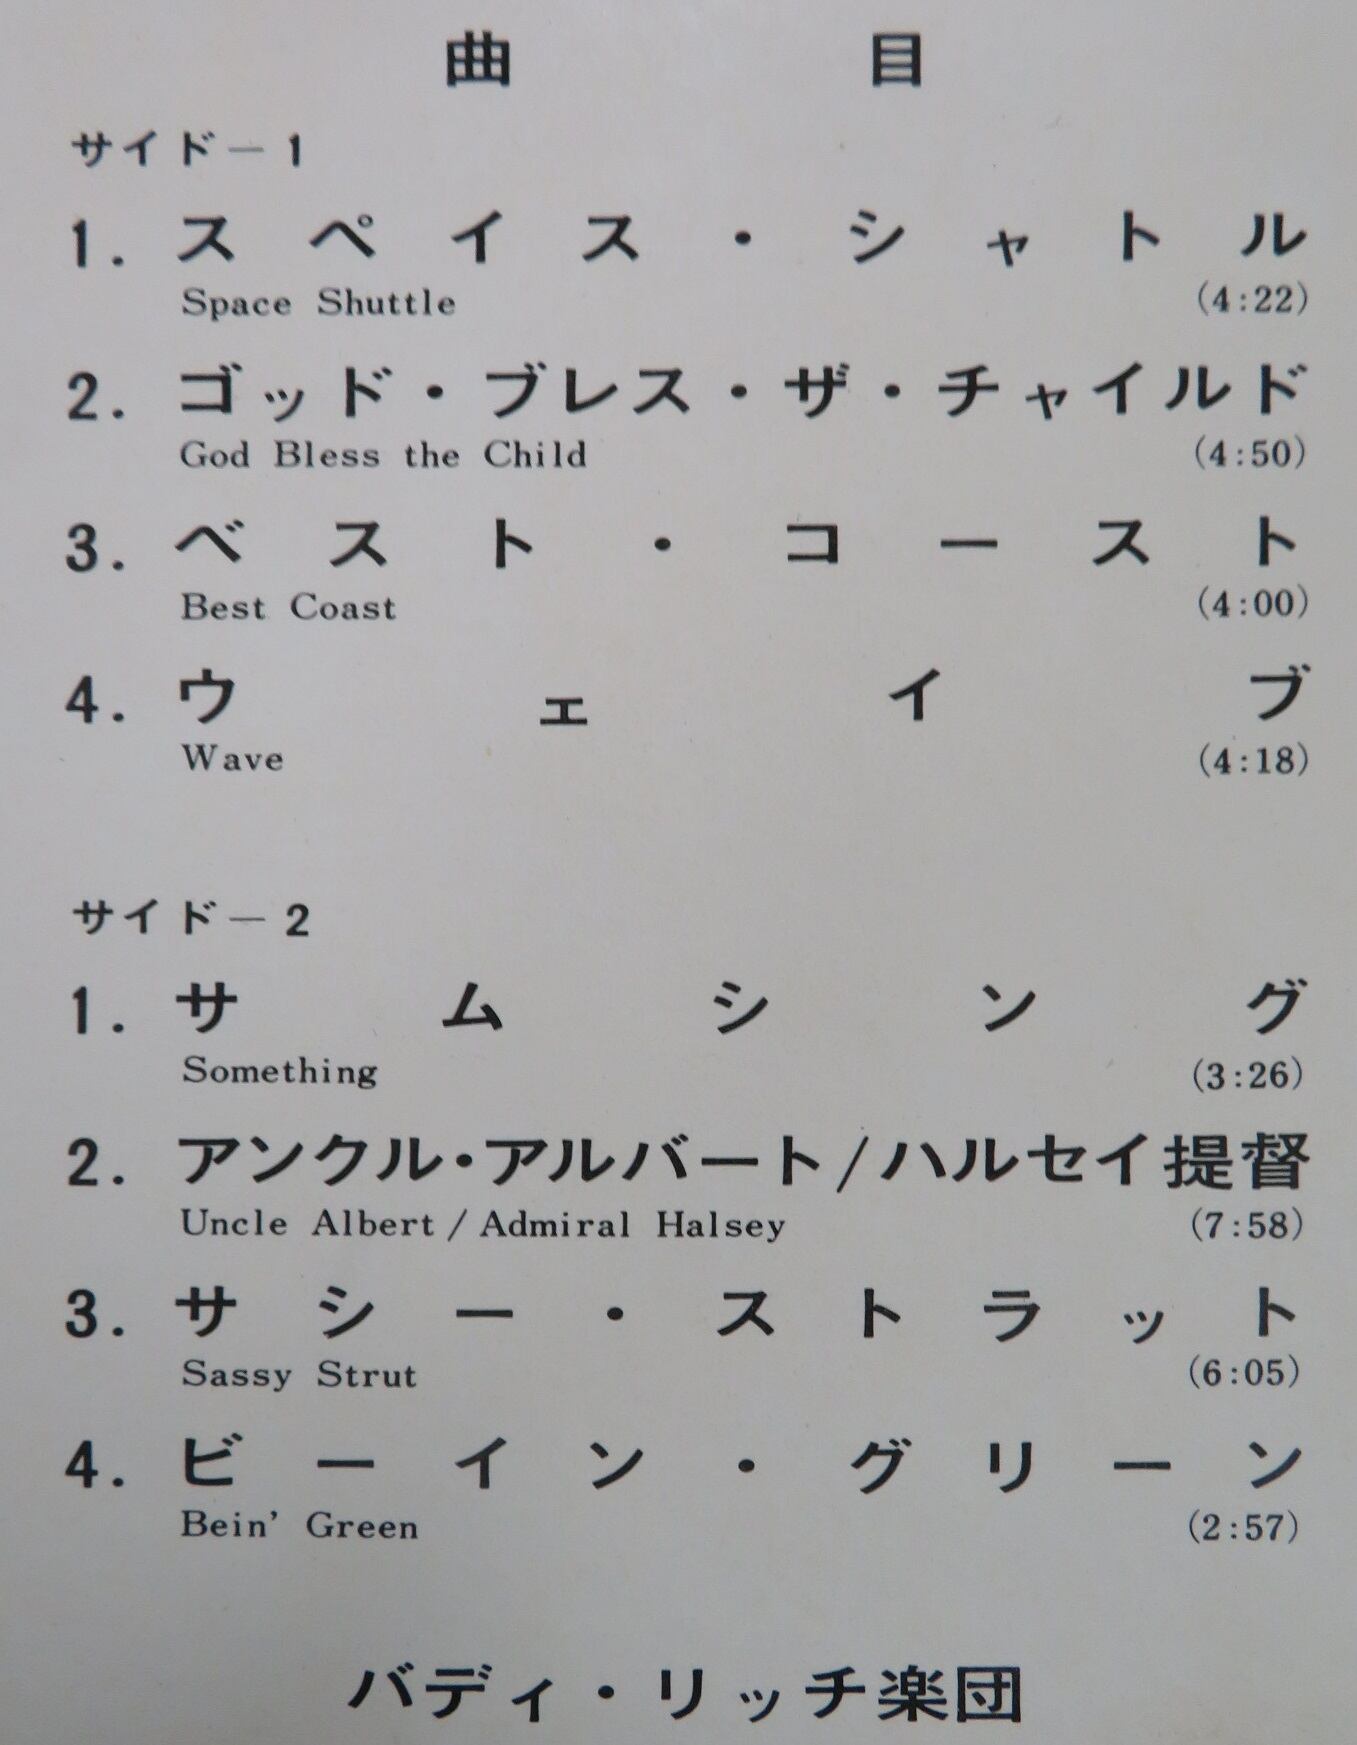 曲目
サイド－1
1. スペイス・シャトル
Space Shuttle (4:22)
2. ゴッド・ブレス・ザ・チャイルド
God Bless the Child (4:50)
3. ベスト・コースト
Best Coast (4:00)
4. ウェイブ
Wave (4:18)
サイド－2
1. サムシング
Something (3:26)
2. アンクル・アルバート/ハルセイ提督
Uncle Albert / Admiral Halsey (7:58)
3. サシー・ストラット
Sassy Strut (6:05)
4. ビーイン・グリーン
Bein' Green (2:57)
バディ・リッチ楽団